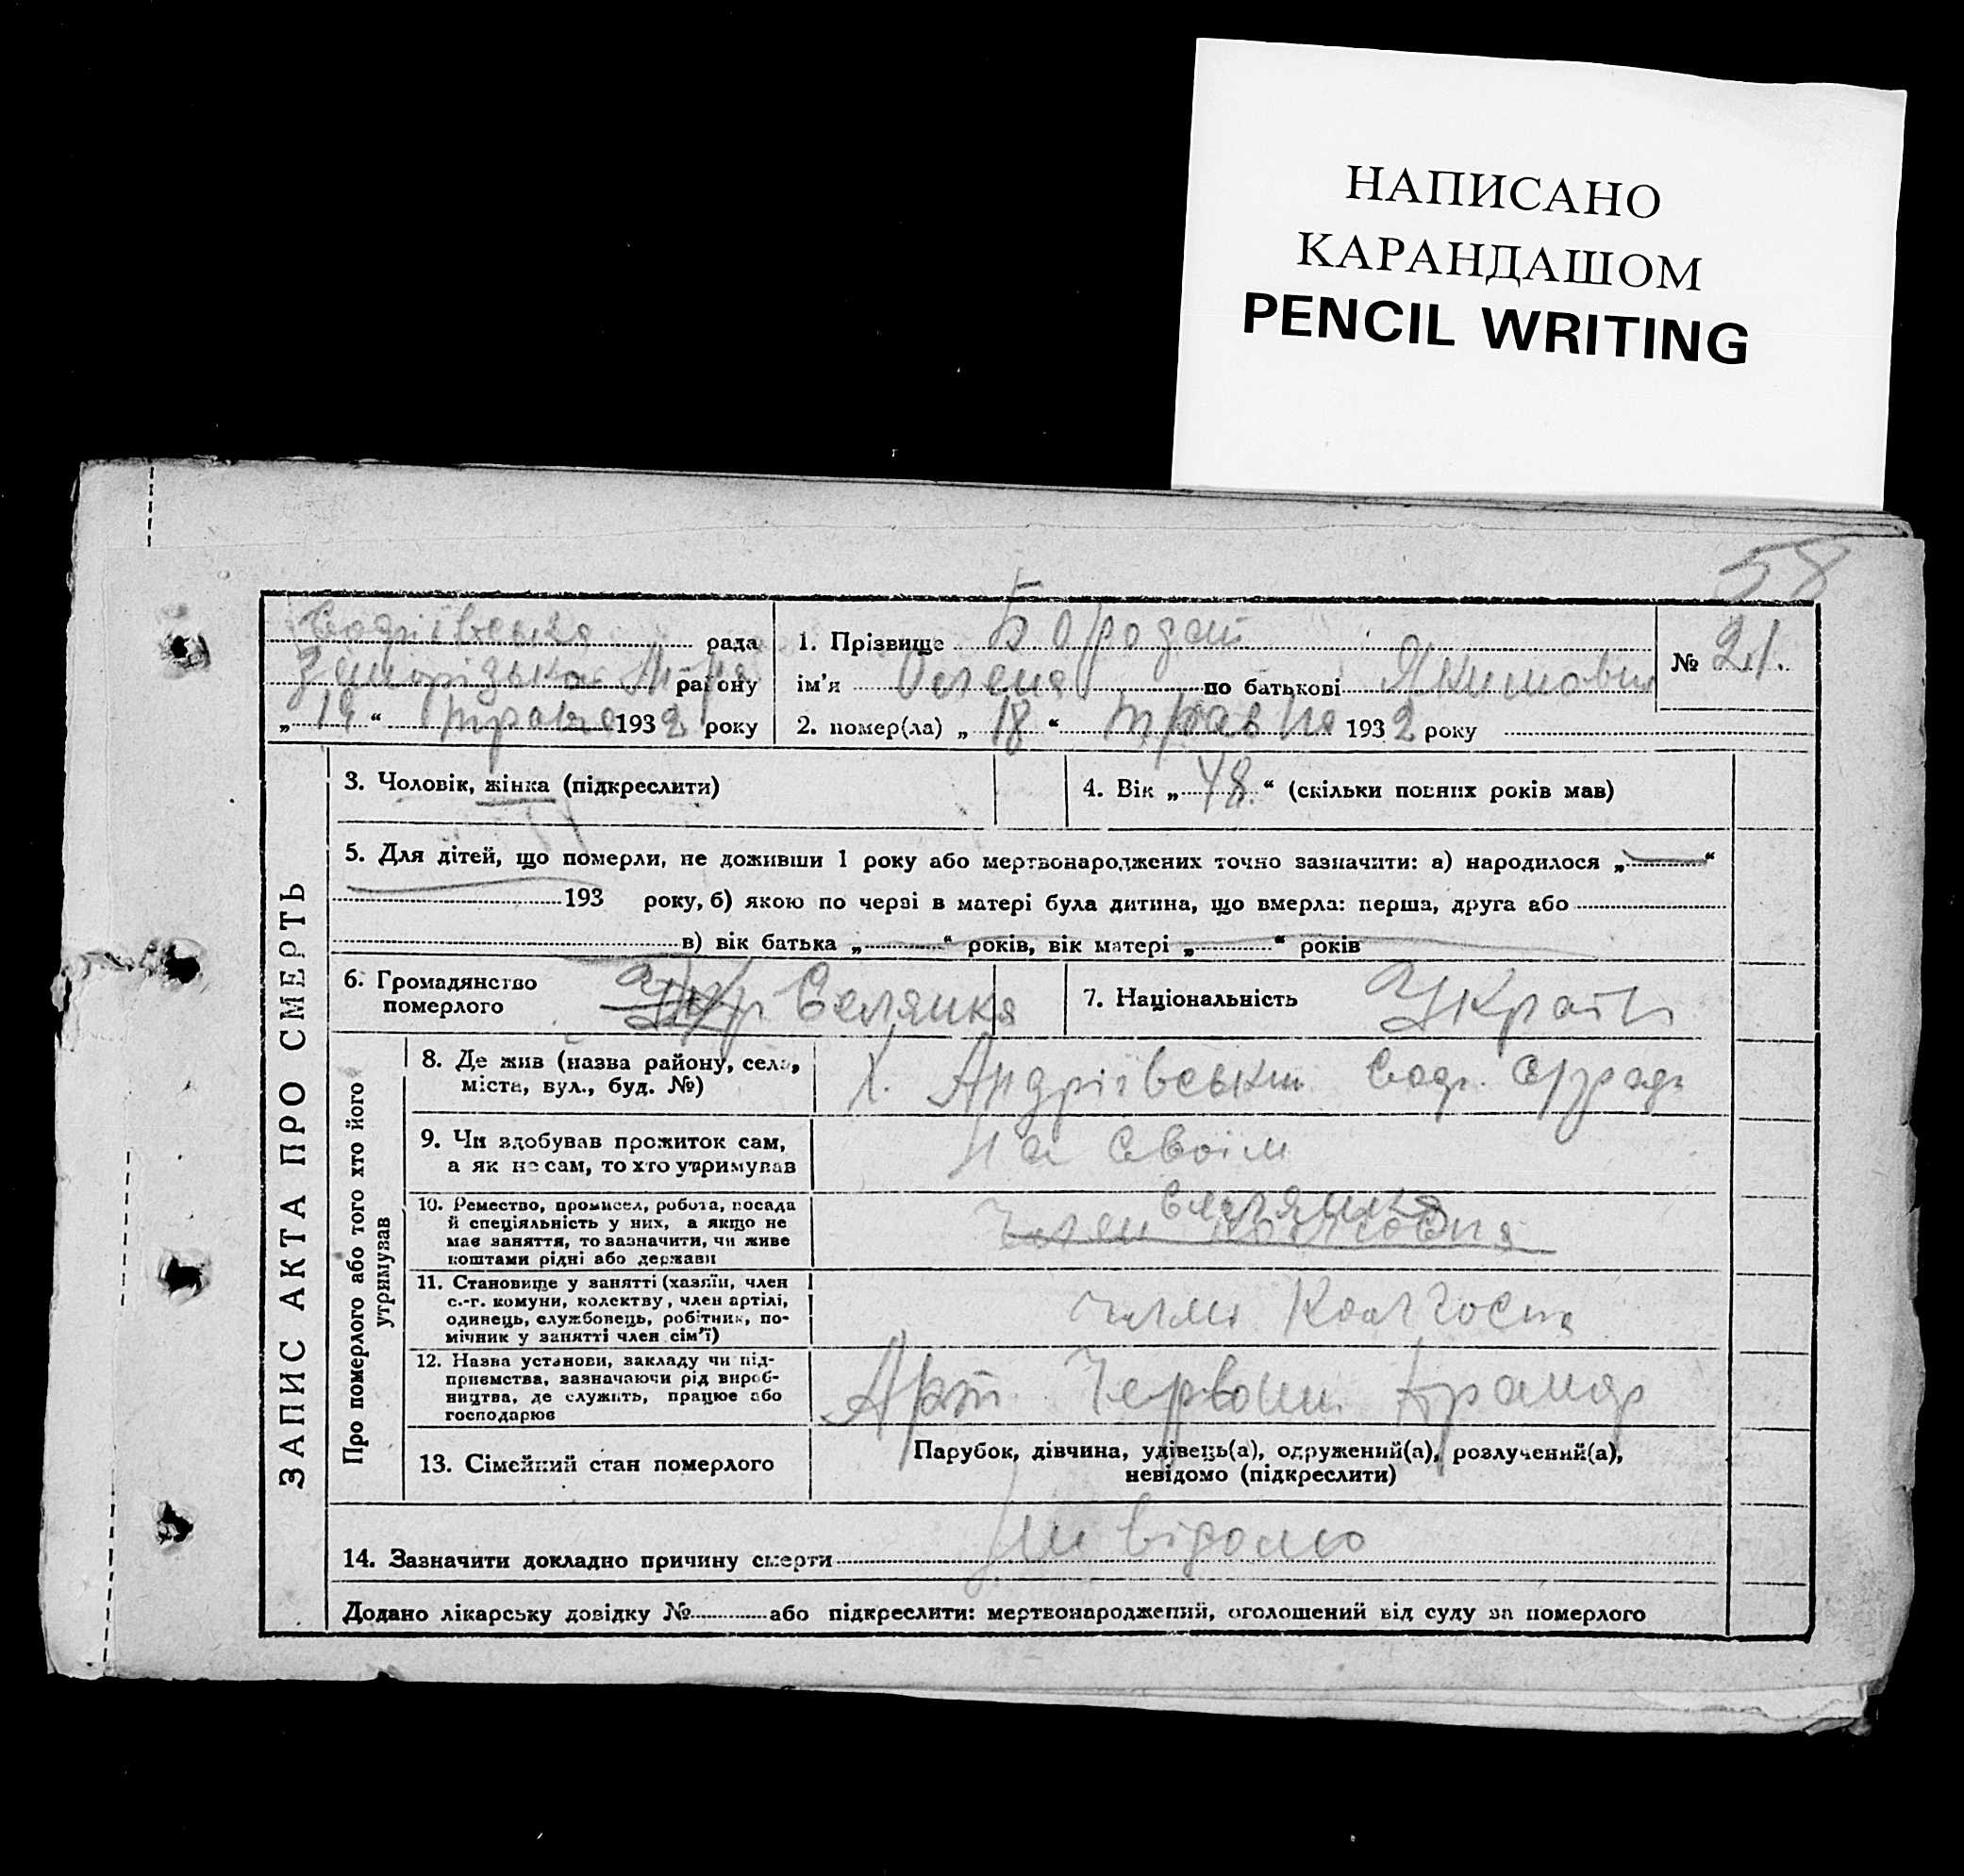 НАПИСАНО
КАРАНДАШОМ
PENCIL WRITING
58
рада
Запорізького району
„19“ травня 1932 року
1. Прізвище Бородат
ім'я Олена по батькові Якимовна
2. помер(ла) „18“ травня 1932 року
№ 21.
ЗАПИС АКТА ПРО СМЕРТЬ
3. Чоловік, жінка (підкреслити)
4. Вік „48.“ (скільки повних років мав)
5. Для дітей, що померли, не доживши 1 року або мертвонароджених точно зазначити: а) народилося „ “
193 року, б) якою по черзі в матері була дитина, що вмерла: перша, друга або
в) вік батька „ “ років, вік матері „ “ років
6. Громадянство
померлого
Селянка
7. Національність Україн
Про померлого або того хто його
утримував
8. Де жив (назва району, села,
міста, вул., буд. №)
Х. Андріївський
9. Чи здобував прожиток сам,
а як не сам, то хто утримував
На своїм
10. Ремество, промисел, робота, посада
й спеціяльність у них, а якщо не
має заняття, то зазначити, чи живе
коштами рідні або держави
Селянка
Член колгоспа
11. Становище у занятті (хазяїн, член
с.-г. комуни, колектву, член артілі,
одинець, службовець, робітник, по-
мічник у занятті член сім'ї)
член Колгоспа
12. Назва установи, закладу чи під-
приємства, зазначаючи рід вироб-
ництва, де служить, працює або
господарює
Арт Червоний
13. Сімейний стан померлого
Парубок, дівчина, удівець(а), одружений(а), розлучений(а),
невідомо (підкреслити)
14. Зазначити докладно причину смерти невідомо
Додано лікарську довідку № або підкреслити: мертвонароджений, оголошений від суду за померлого